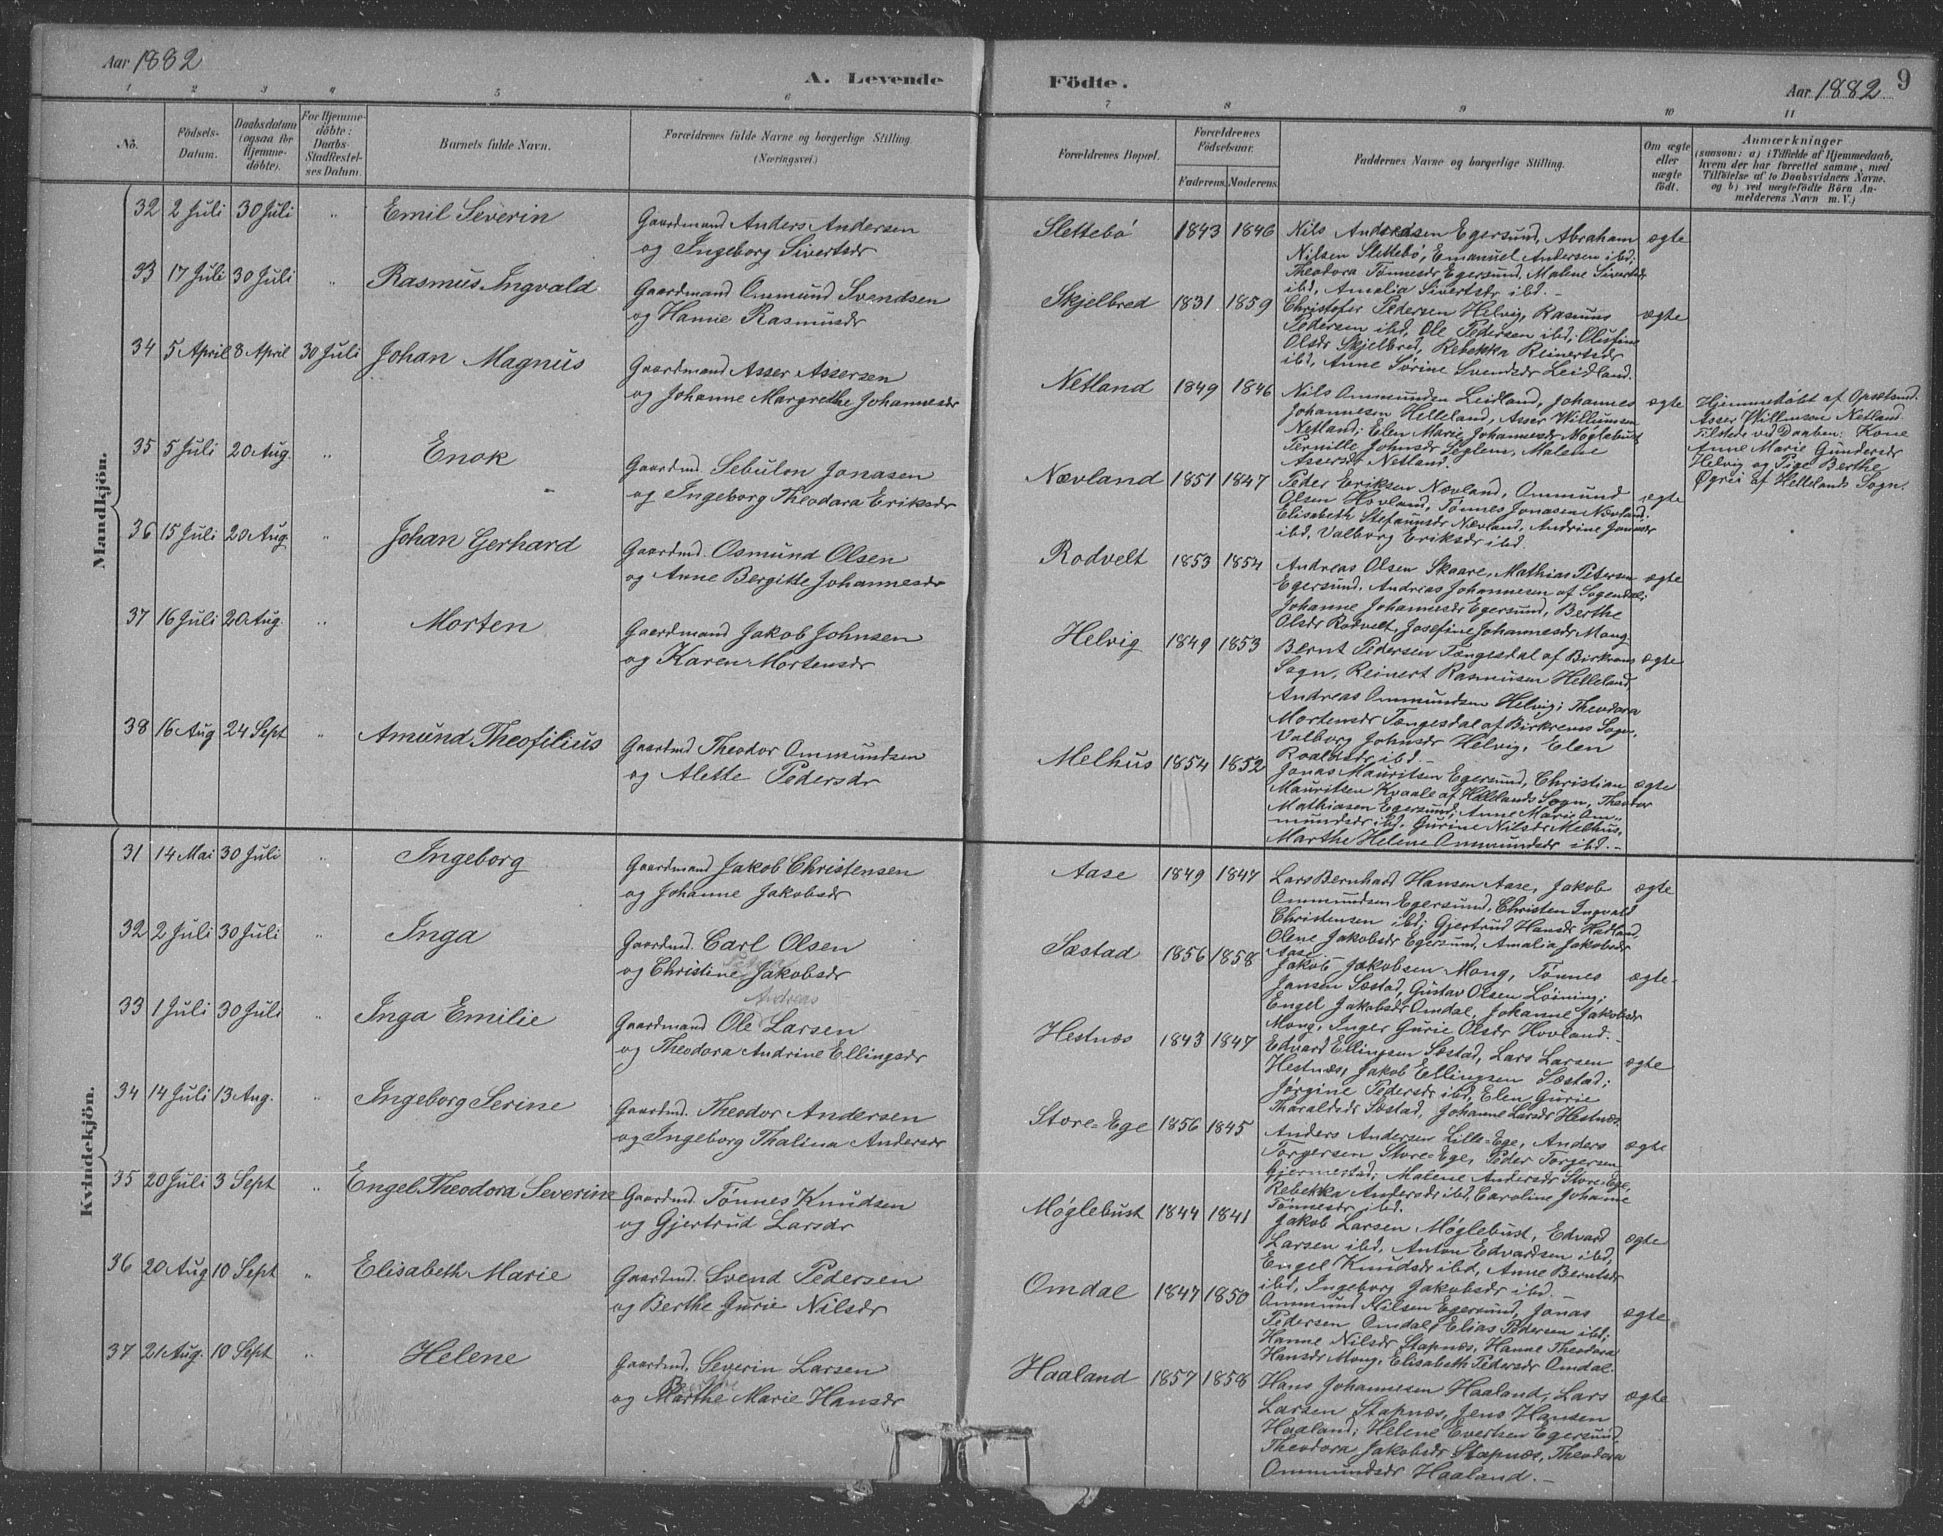 Aar 1882
A. Levende Födte.
Aar 1882
9
1 2 3 4 5 6 7 8 9 10 11
No.
Födsels-
Datum.
Daabsdatum
(ogsaa for
Hjemme-
døbte).
For Hjemme-
døbte:
Daabs-
Stadfæstel-
ses Datum.
Barnets fulde Navn.
Forældrenes fulde Navne og borgerlige Stilling.
(Næringsvei.)
Forældrenes Bopæl.
Forældrenes
Födselsaar.
Faderens. Moderens.
Faddernes Navne og borgerlige Stilling.
Om ægte
eller
uægte
født.
Anmærkninger
(saasom: a) i Tilfælde af Hjemmedaab,
hvem der har forrettet samme, med
Tilföielse af to Daabsvidners Navne,
og b) ved uægtefødte Börn An-
melderens Navn m. V.)
Mandkjön.
32 2 Juli 30 Juli „ Emil Severin
Gaardmand Anders Andersen
og Ingeborg Sivertsdr
Slettebö 1843 1846
Nils Andersen Egersund, Abraham
Nilsen Slettebö, Emanuel Andersen ibd;
Theodora Tønnesdr Egersund, Malene Sivertsdr
ibd, Amalia Sivertsdr ibd. –
ægte
33 17 Juli 30 Juli „ Rasmus Ingvald
Gaardmand Ommund Svendsen
og Hanne Rasmusdr
Skjelbred 1831 1859
Christofer Pedersen Helvig, Rasmus
Pedersen ibd, Ole Pedersen ibd; Olufine
Olsdr Skjelbred, Rebekka Reinertsdr
ibd, Anne Sørine Svendsdr Leidland.
ægte
34 5 April 8 April 30 Juli Johan Magnus
Gaardmand Asser Assersen
og Johanne Margrethe Johannesdr
Netland 1849 1846
Nils Ommundsen Leidland, Johannes
Johannesen Helleland, Asser Willumsen
Netland; Elen Marie Johannesdr Møglebust
Pernille Johnsdr Seglem, Malene
Assersdr Netland.
ægte
Hjemmedøbt af Opsætsmd.
Asser Willumsen Netland
Tilstede ved Daaben: Kone
Anne Marie Gundersdr
Helvig og Pige Berthe
af Hellelands Sogn.
35 5 Juli 20 Aug. „ Enok
Gaardmd. Sebulon Jonasen
og Ingeborg Theodora Eriksdr
Nævland 1851 1847
Peder Eriksen Nævland, Ommund
Olsen Hovland, Tønnes Jonasen Nævland.
Elisabeth Stefansdr Nævland, Andrine Jonasdr
ibd, Valborg Eriksdr ibd.
ægte
36 15 Juli 20 Aug. „ Johan Gerhard
Gaardmd. Osmund Olsen
og Anne Bergitte Johannesdr
Rodvelt 1853 1854
Andreas Olsen Skaare, Mathias Petersen
Egersund, Andreas Johannesen af Sogendal;
Johanne Johannesdr Egersund, Berthe
Olsdr Rodvelt, Josefine Johannesdr Mong
ægte
37 16 Juli 20 Aug. „ Morten
Gaardmand Jakob Johnsen
og Karen Mortensdr
Helvig 1849 1853
Bernt Pedersen Tængesdal af Birkrems
Sogn, Reinert Rasmusen Helleland,
Andreas Ommundsen Helvig; Theodora
Mortensdr Tængesdal af Birkrems Sogn,
Valborg Johnsdr Helvig, Elen
Roaldsdr ibd –
ægte
38 16 Aug 24 Sept „ Amund Theofilius
Gaardmd Theodor Ommundsen
og Alette Pedersdr
Melhus 1854 1852
Jonas Mauritsen Egersund, Christian
Mauritsen Kvaale af Hellelands Sogn, Theodor
Mathiasen Egersund; Anne Marie Om„
mundsdr ibd, Gurine Nilsdr Melhus,
Marthe Helene Ommundsdr ibd. –
ægte
Kvindekjön.
31 14 Mai 30 Juli „ Ingeborg
Gaardmand Jakob Christensen
og Johanne Jakobsdr
Aase 1849 1847
Lars Bernhard Hansen Aase, Jakob
Ommundsen Egersund, Christen Ingvald
Christensen ibd; Gjertrud Hansdr Hadland,
Olene Jakobsdr Egersund, Amalia Jakobsdr
Aase
ægte
32 2 Juli 30 Juli „ Inga
Gaardmd. Carl Olsen
og Christine Jakobsdr
Sæstad 1856 1858
Jakob Jakobsen Mong, Tønnes
Jansen Sæstad, Gustav Olsen Löining;
Engel Jakobsdr Omdal, Johanne Jakobsdr
Mong, Inger Gurie Olsdr Hovland.
ægte
33 1 Juli 30 Juli „ Inga Emilie
Andreas
Gaardmand Ole Larsen
og Theodora Andrine Ellingsdr
Hestnæs 1843 1847
Edvard Ellingsen Sæstad, Lars Larsen
Hestnæs, Jakob Ellingsen Sæstad;
Jørgine Pedersdr ibd, Elen Gurie
Tharaldsdr Sæstad, Johanne Larsdr Hestnæs
ægte
34 14 Juli 13 Aug. „ Ingeborg Serine
Gaardmd. Theodor Andersen
og Ingeborg Thalina Andersdr
Store=Ege 1856 1845
Anders Andersen Lille=Ege, Anders
Torgersen Store=Ege, Peder Torgersen
Gjermestad; Malene Andersdr Store=Ege,
Rebekka Andersdr ibd, Caroline Johanne
Tønnesdr ibd.
ægte
35 20 Juli 3 Sept „ Engel Theodora Severine
Gaardmd. Tönnes Knudsen
og Gjertrud Larsdr
Møglebust 1844 1841
Jakob Larsen Møglebust, Edvard
Larsen ibd, Anton Edvardsen ibd,
Engel Knudsdr ibd, Anne Berntsdr
ibd, Ingeborg Jakobsdr ibd. –
ægte
36 20 Aug 10 Sept „ Elisabeth Marie
Gaardmd. Svend Pedersen
og Berthe Gurie Nilsdr
Omdal 1847 1850
Ommund Nilsen Egersund, Jonas
Pedersen Omdal, Elias Pedersen ibd;
Hanne Nilsdr Stapnæs, Hanne Theodora
Hansdr Mong, Elisabeth Pedersdr Omdal.
ægte
37 21 Aug. 10 Sept „ Helene
Gaardmd, Severin Larsen
og Marthe Marie Hansdr
Haaland 1857 1858
Hans Johannesen Haaland, Lars
Larsen Stapnæs, Jens Hansen
Haaland; Helene Evertsen Egersund
Theodora Jakobsdr Stapnæs, Theodora
Ommundsdr Haaland. –
ægte